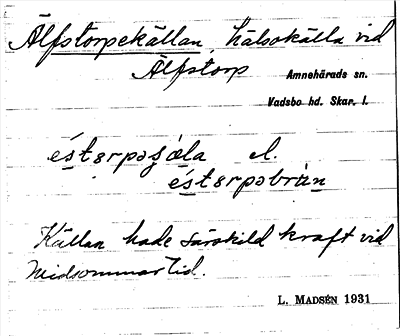 Älfstorpekällan, hälsokälla vid
Älfstorp
Amnehärads sn.
Vadsbo hd. Skar. l.
éstərpəʂæla el.
éstərpəbrùn
Källan hade särskild kraft vid
midsommartid.
L. MADSÉN 1931